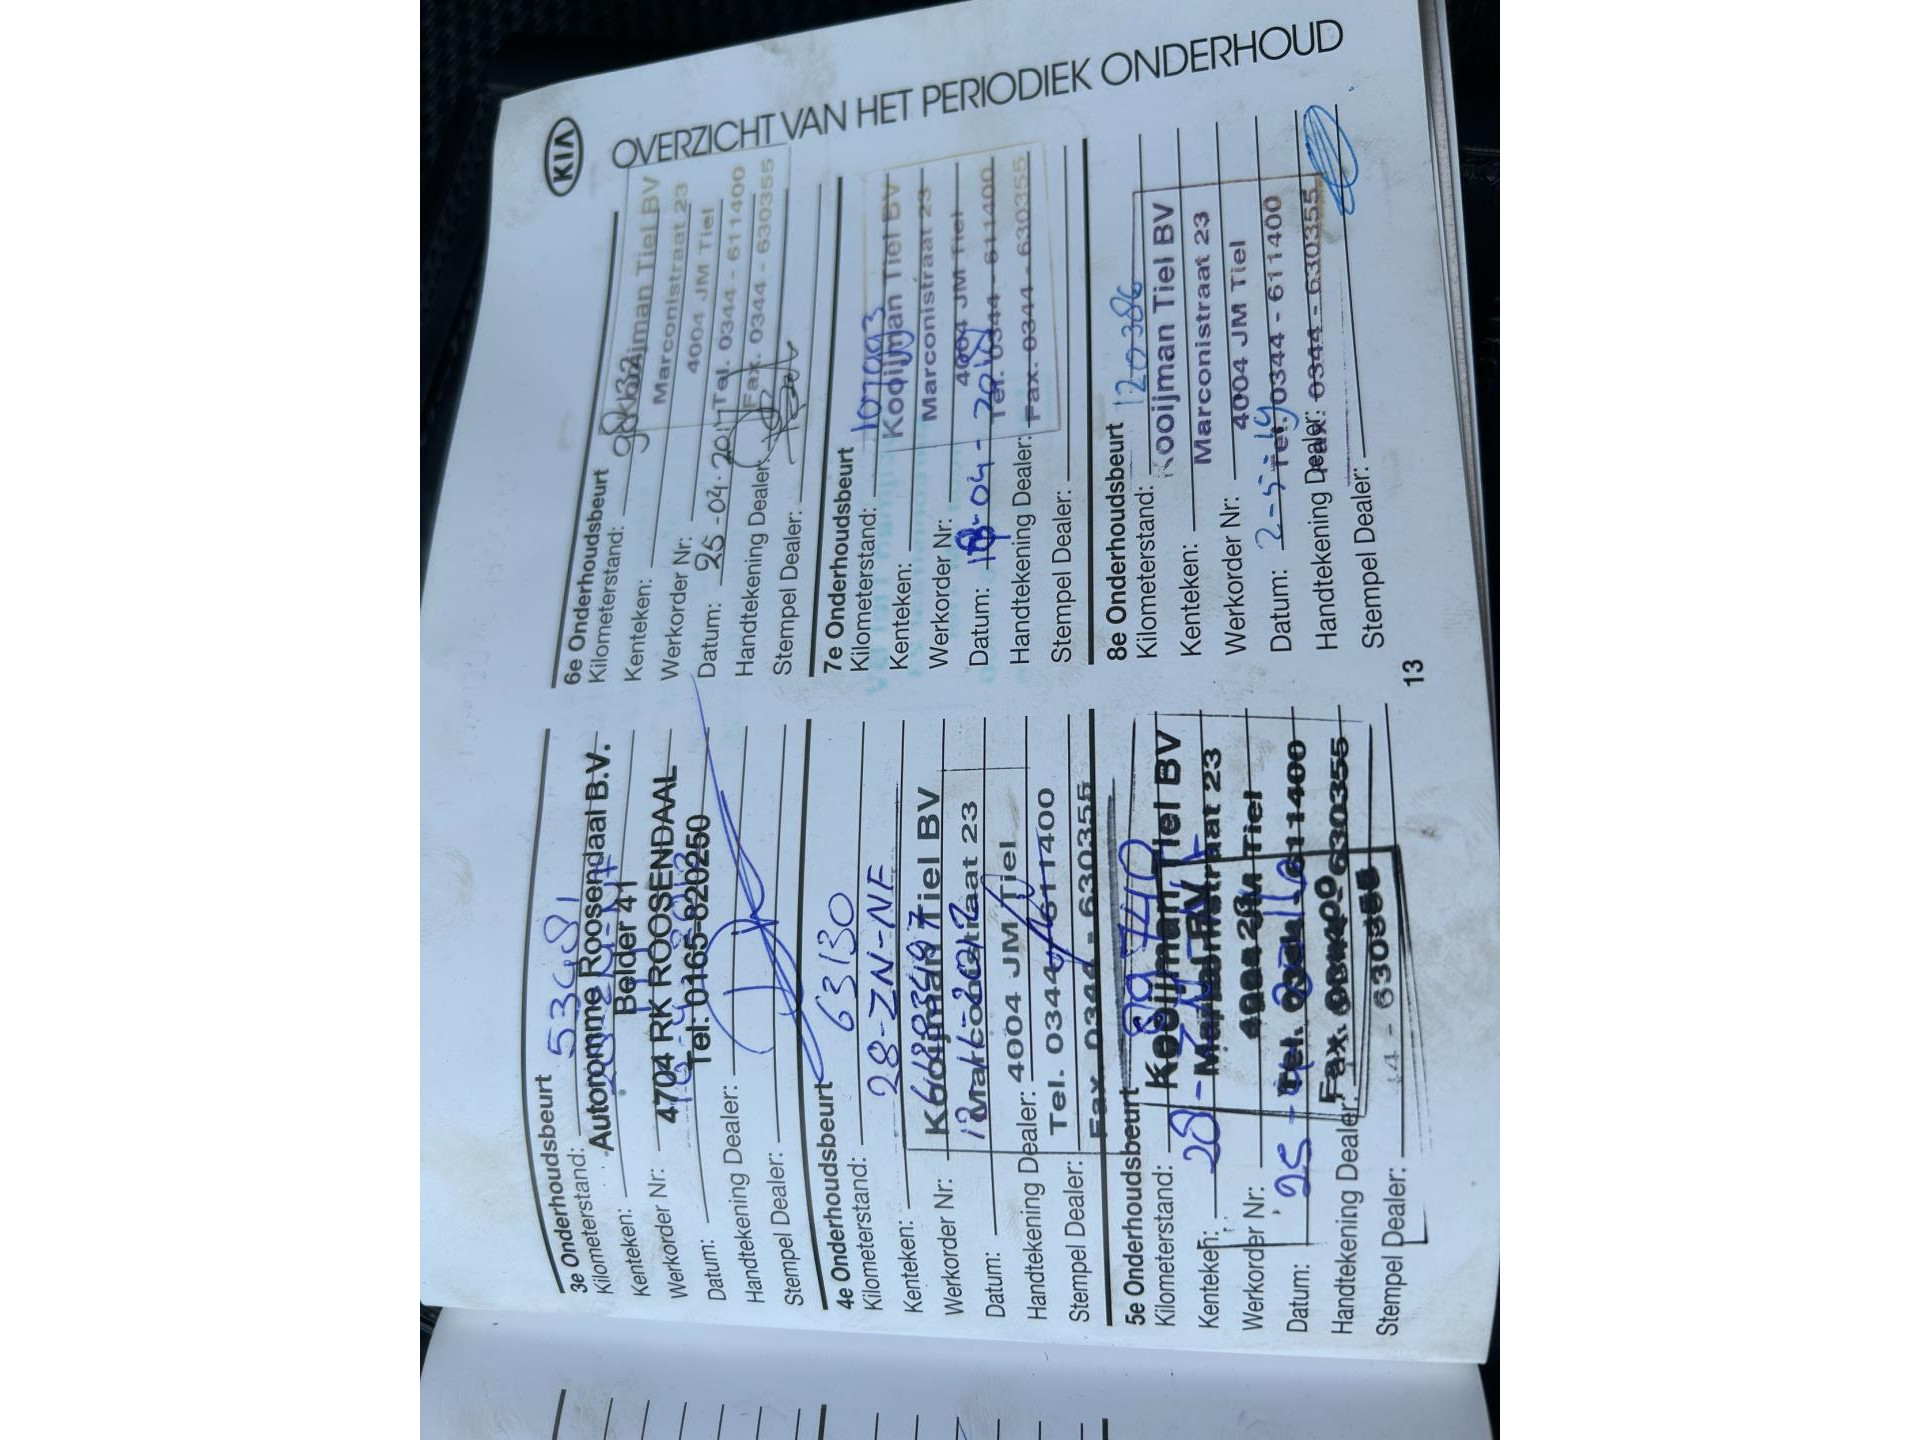 KIA
OVERZICHT VAN HET PERIODIEK ONDERHOUD
3e Onderhoudsbeurt
Kilometerstand: 53481
Autoromme Roosendaal B.V.
Kenteken:
Belder 41
Werkorder Nr:
4704 RK ROOSENDAAL
Datum:
Tel. 0165-820250
Handtekening Dealer:
Stempel Dealer:
4e Onderhoudsbeurt
Kilometerstand: 63130
Kenteken: 28-ZN-NF
Kooijman Tiel BV
Werkorder Nr:
Marconistraat 23
Datum:
4004 JM Tiel
Handtekening Dealer:
Tel. 0344 - 611400
Stempel Dealer:
Fax. 0344 - 630355
5e Onderhoudsbeurt
Kilometerstand: 89740
Kooijman Tiel BV
Kenteken:
Marconistraat 23
Werkorder Nr:
4004 JM Tiel
Datum:
Tel. 0344 - 611400
Handtekening Dealer:
Fax. 0344 - 630355
Stempel Dealer:
630355
6e Onderhoudsbeurt
Kilometerstand:
Kooijman Tiel BV
Kenteken:
Marconistraat 23
Werkorder Nr:
4004 JM Tiel
Datum: 25-04-2017
Tel. 0344 - 611400
Handtekening Dealer:
Fax. 0344 - 630355
Stempel Dealer:
7e Onderhoudsbeurt
Kilometerstand:
Kooijman Tiel BV
Kenteken:
Marconistraat 23
Werkorder Nr:
4004 JM Tiel
Datum:
Tel. 0344 - 611400
Handtekening Dealer:
Fax. 0344 - 630355
Stempel Dealer:
8e Onderhoudsbeurt
Kilometerstand: 120386
Kooijman Tiel BV
Kenteken:
Marconistraat 23
Werkorder Nr:
4004 JM Tiel
Datum: 2-5-19
Tel. 0344 - 611400
Handtekening Dealer:
Fax. 0344 - 630355
Stempel Dealer:
13